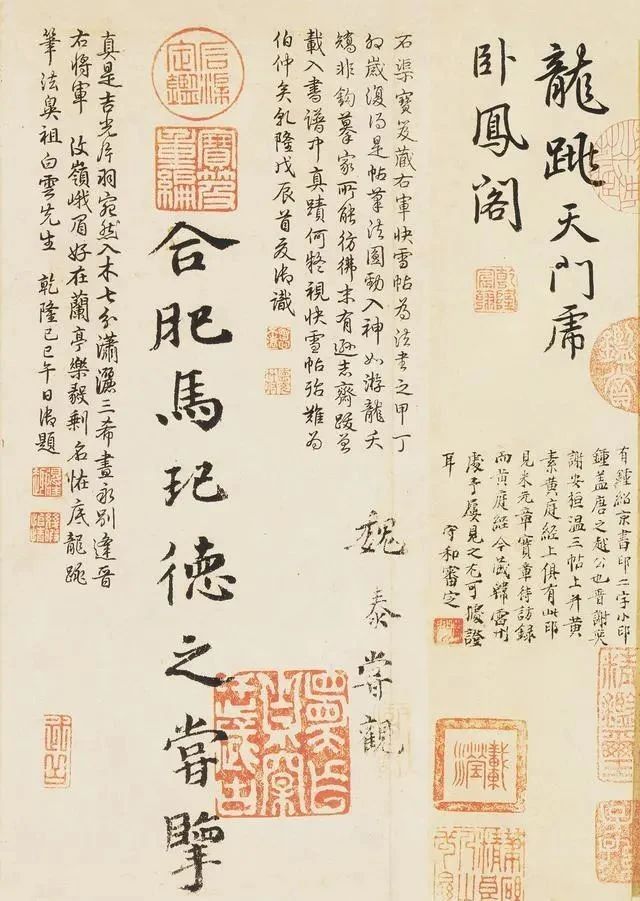 龍跳天門虎
臥鳳閣
乾隆宸翰
有鍾紹京書印二字小印
鍾蓋唐之越公也晉謝奕
謝安桓溫三帖上并黃
素黃庭經上俱有此印
見米元章寶章待訪錄
而黃庭經今藏韓雷州
處予屢見之尤可據證
耳 守和審定
載瀅
石渠寶笈藏右軍快雪帖為法書之甲丁
卯歲復得是帖筆法圓勁入神如游龍夭
矯非鈎摹家所能彷彿末有遜志齋跋曾
載入書譜中真蹟何疑視快雪帖殆難為
伯仲矣乾隆戊辰首夏御識
魏泰嘗觀
石渠定鑑
寶笈重編
合肥馬玘德之嘗
真是吉光片羽宛然入木七分瀟灑三希晝永別逢晉
右將軍 汶嶺峨眉好在蘭亭樂毅剩名恠底龍跳
筆法奥祖白雲先生 乾隆己巳午日御題